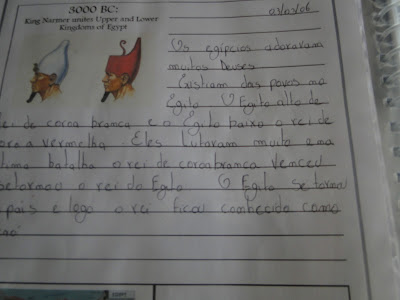 3000 BC:
King Narmer unites Upper and Lower
Kingdoms of Egypt
03/03/06
Os egípcios adoravam
muitos Deuses
Existiam dos povos no
Egito O Egito alto de
rei de coroa branca e o Egito baixo o rei de
vermelha. Eles lutaram muito e na
tima batalha o rei de coroa branca venceu
o rei do Egito O Egito se torna
pais e logo o rei ficou conhecido como